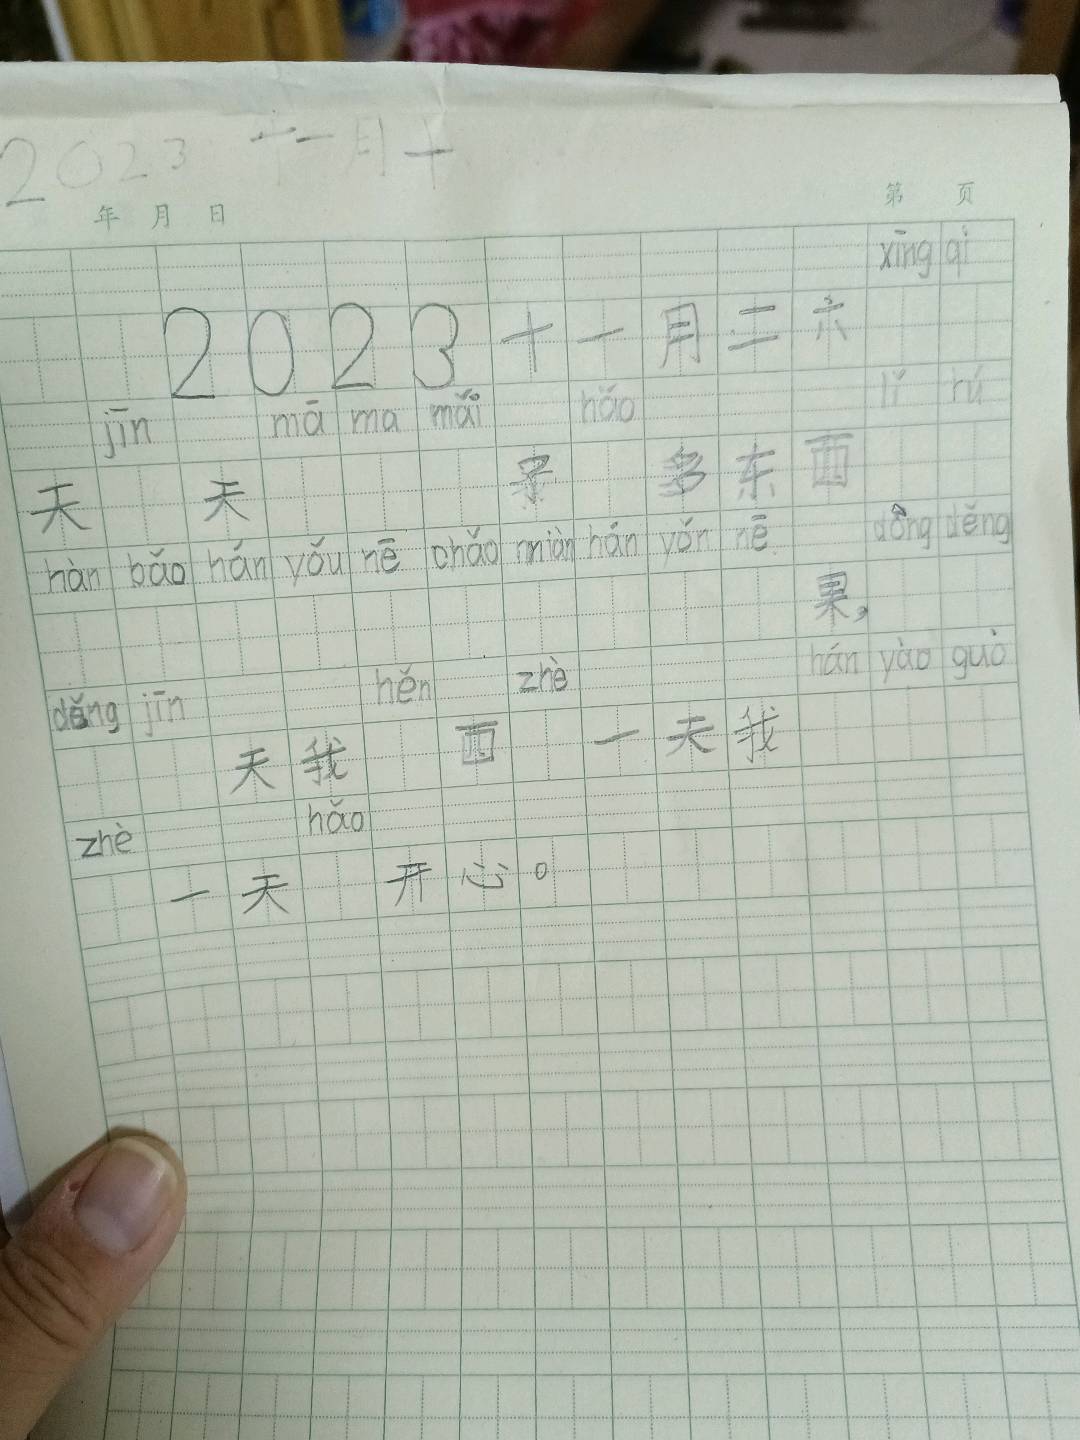 2023 十一月十
年 月 日 第 页
xīng qi
2023十一月二六
jīn mā ma mǎi hǎo lǐ rú
天 天 多东西
hàn bǎo hán yǒu nē chǎo miàn hán yǒn nē dōng děng
果,
děng jīn hěn zhè hán yào guò
天我 西 一天我
zhè hǎo
一天 开心。